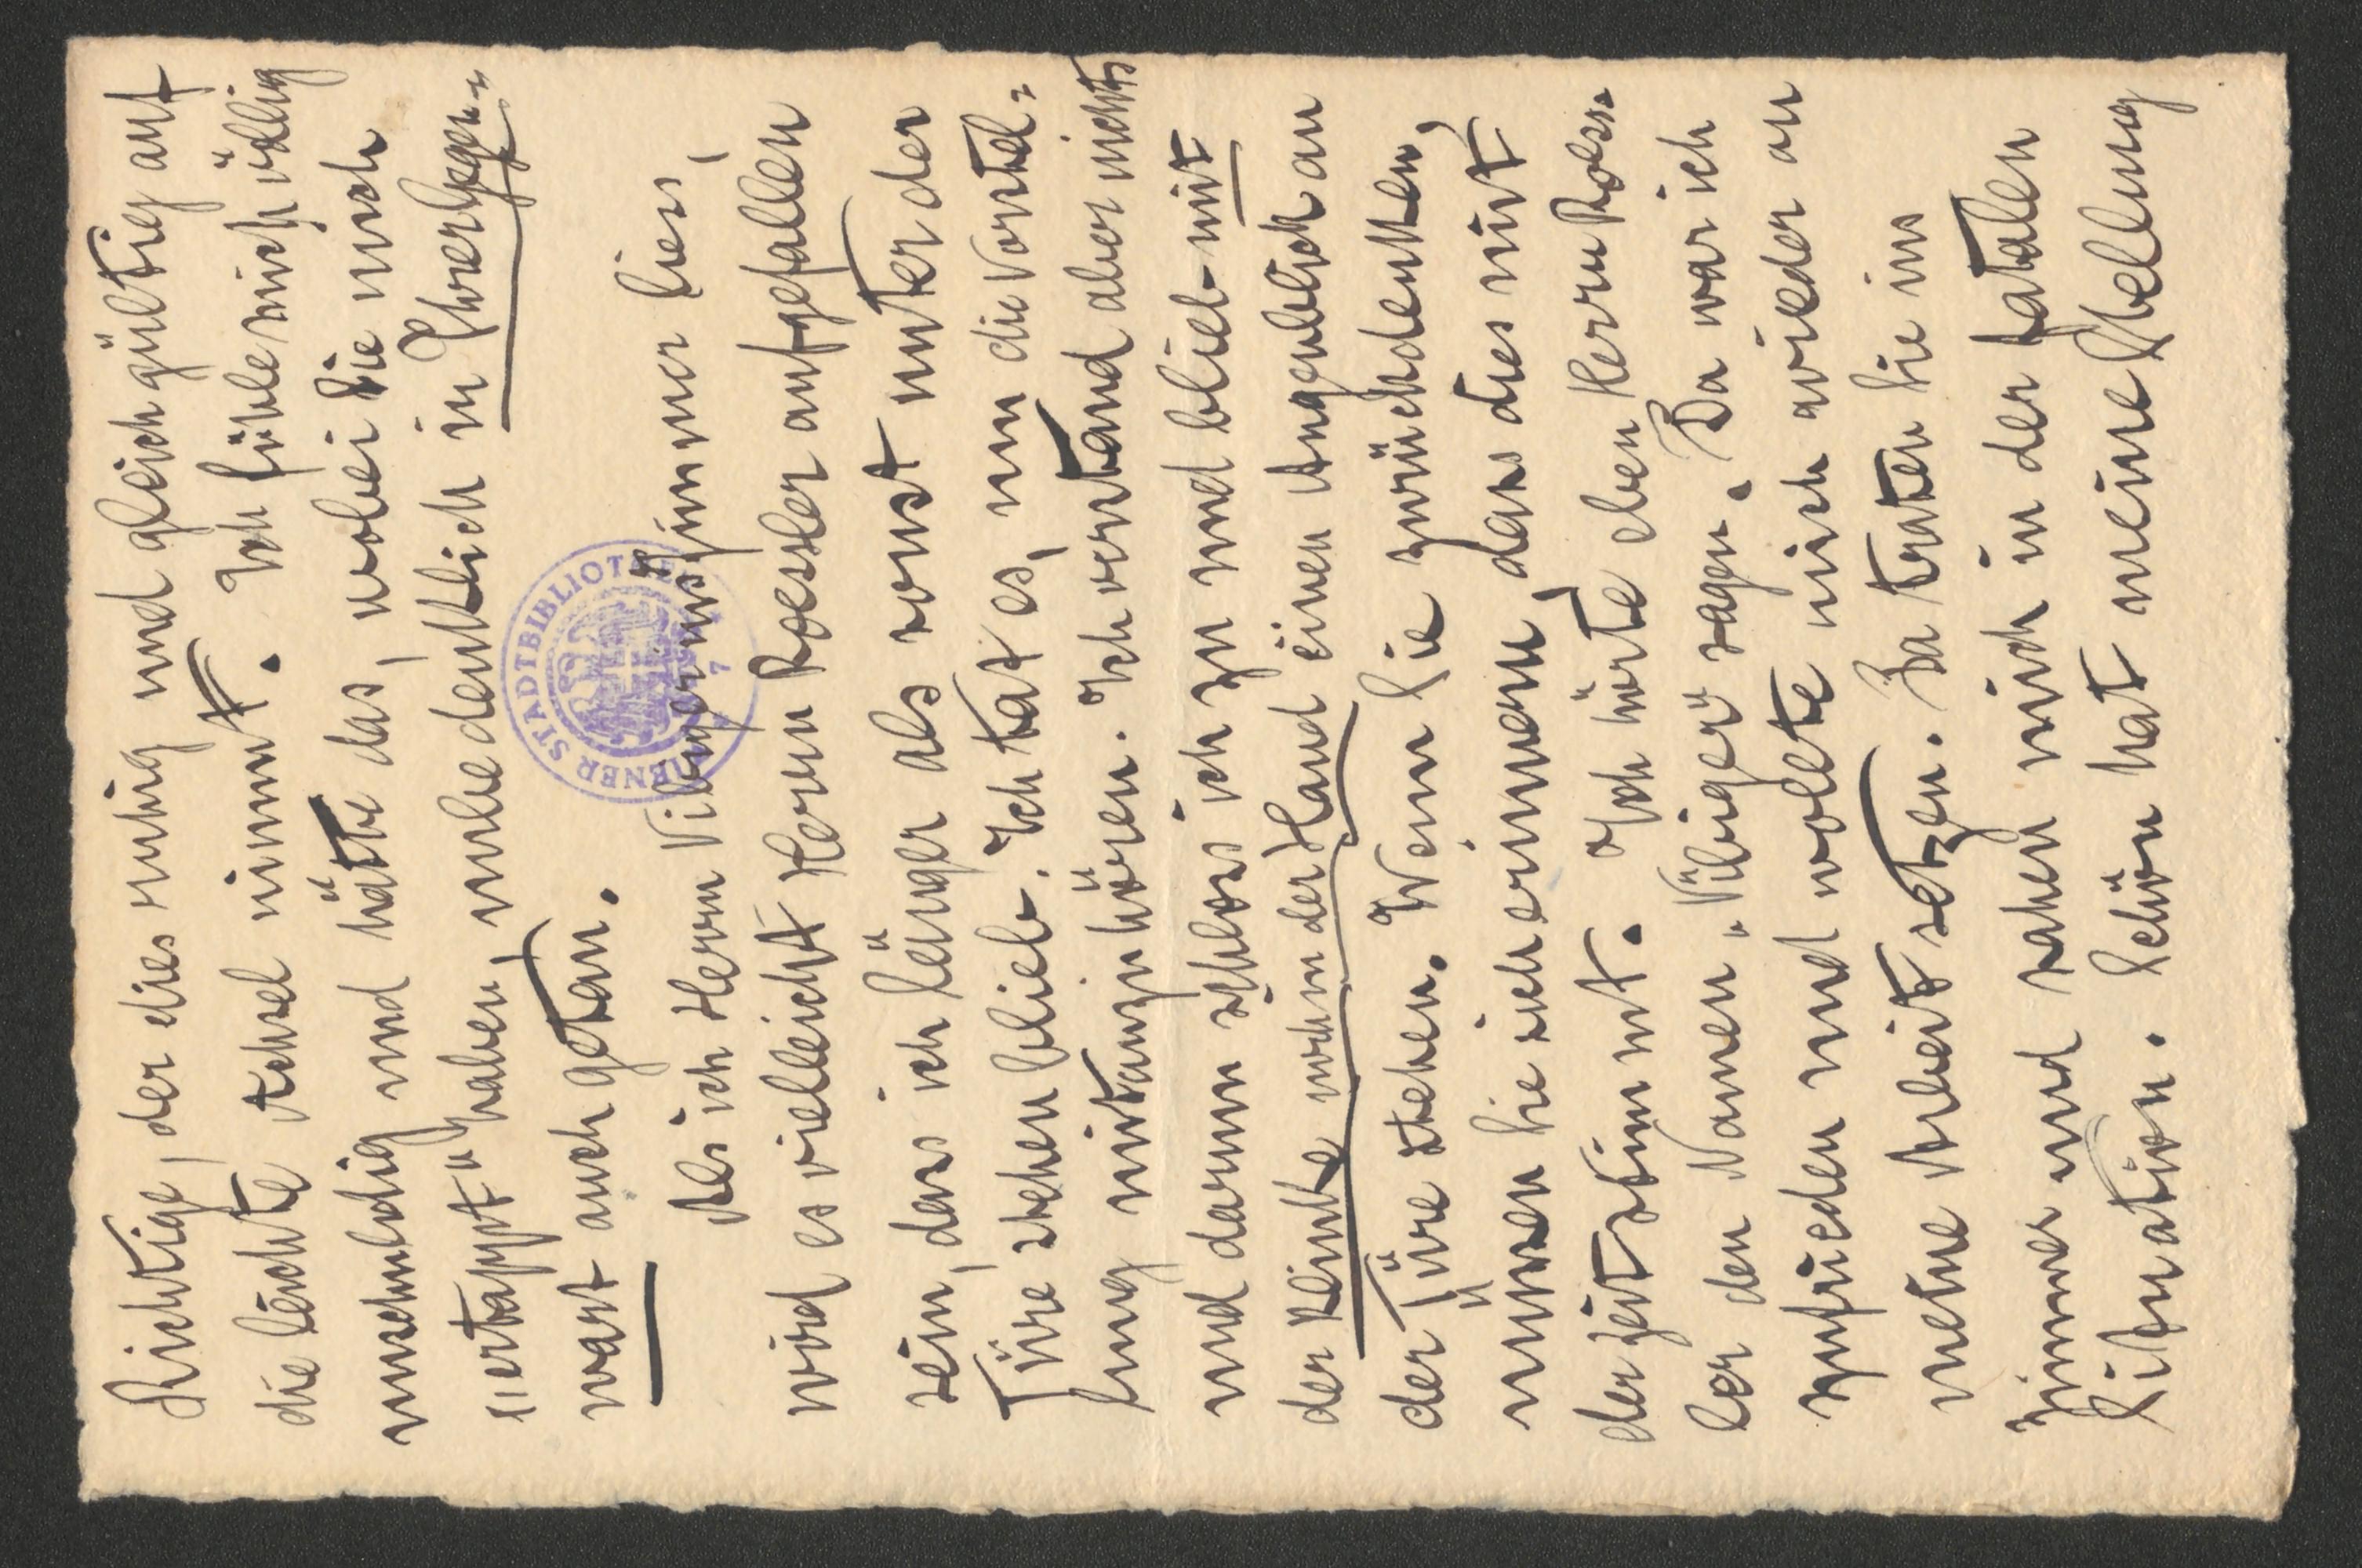 Richtige, der dies ruhig und gleichgültig auf
die leichte Achsel nimmt. Ich fühle mich völlig
unschuldig und hätte das, wobei Sie mich
"ertappt" haben, unbedenklich in Ihrer Gegen-
wart auch getan.
Als ich Herrn Vibiger ins Zimmer liess,
wird es vielleicht Herrn Roessler aufgefallen
sein, dass ich länger als sonst unter der
Türe stehen blieb. Ich tat es, um die Vorstel=
lung mitanzuhören. Ich verstand aber nichts
und darum schloss ich zu und blieb mit
der Klinke noch in der Hand einen Augenblick an
der Türe stehen. Wenn Sie zurückdenken,
müssen Sie sich erinnern, dass dies mit
der Zeit stimmt. Ich hörte eben Herrn Roess-
ler den Namen "Vibiger" sagen. Da war ich
zufrieden und wollte mich wieder an
meine Arbeit setzen. Da traten Sie ins
Zimmer und sahen mich in der fatalen
Situation. Schön hat meine Stellung
WIENER STADTBIBLIOTHEK
7